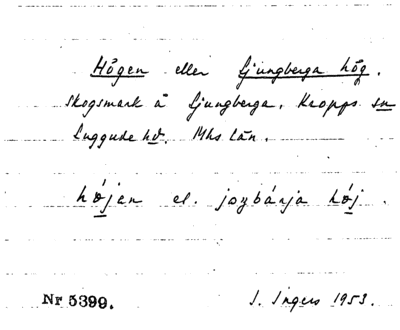 Högen eller Ljungberga hög.
Skogsmark å Ljungberga. Kropps sn
Luggude hd. Mhs län.
højen el. joybánja høj.
Nr 5399.
I. Ingers 1953.